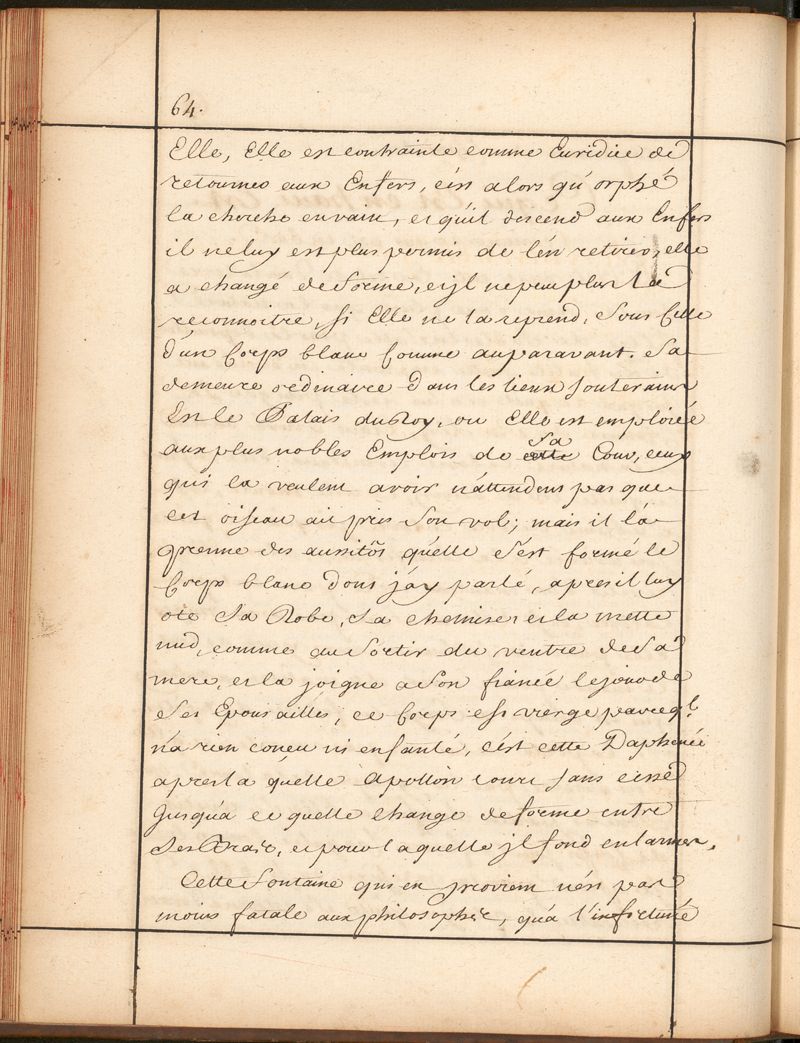 64.
Elle, Elle est contrainte comme Euridice de
retourner aux Enfers, c'est alors qu'orphé
la cherche envain, et qu'il descend aux Enfers
il ne luy est plus permis de l'en retirer, elle
a changé de forme, et jl ne peut plus la
reconnoitre, si Elle ne la reprend, sous Celle
d'un Corps blanc Comme auparavant. Sa
demeure ordinaire dans les lieux souterains
Est le Palais du Roy, ou Elle est emploiée
aux plus nobles Emplois de sa Cour, ceux
qui la veulent avoir n'attendent pas que
cet oiseau ait pris son vol; mais il la
prenne des aussitôs qu'elle s'est formé le
Corps blanc dont j'ay parlé, apres il luy
ote sa Robe, sa chemise, et la mette
nud, comme au sortir du ventre de sa
mere, et la joigne a son fiancé le jour de
ses Epousailles, ce Corps est vierge parceql.
n'a rien conceu ni enfanté, c'est cette Daphenée
apres la quelle Apollon court sans cesse
Jusqu'a ce quelle change de forme entre
ses Bras, et pour laquelle jl fond en larmes.
Cette fontaine qui en provient n'est pas
moins fatale aux philosophes, qu'a l'infortuné